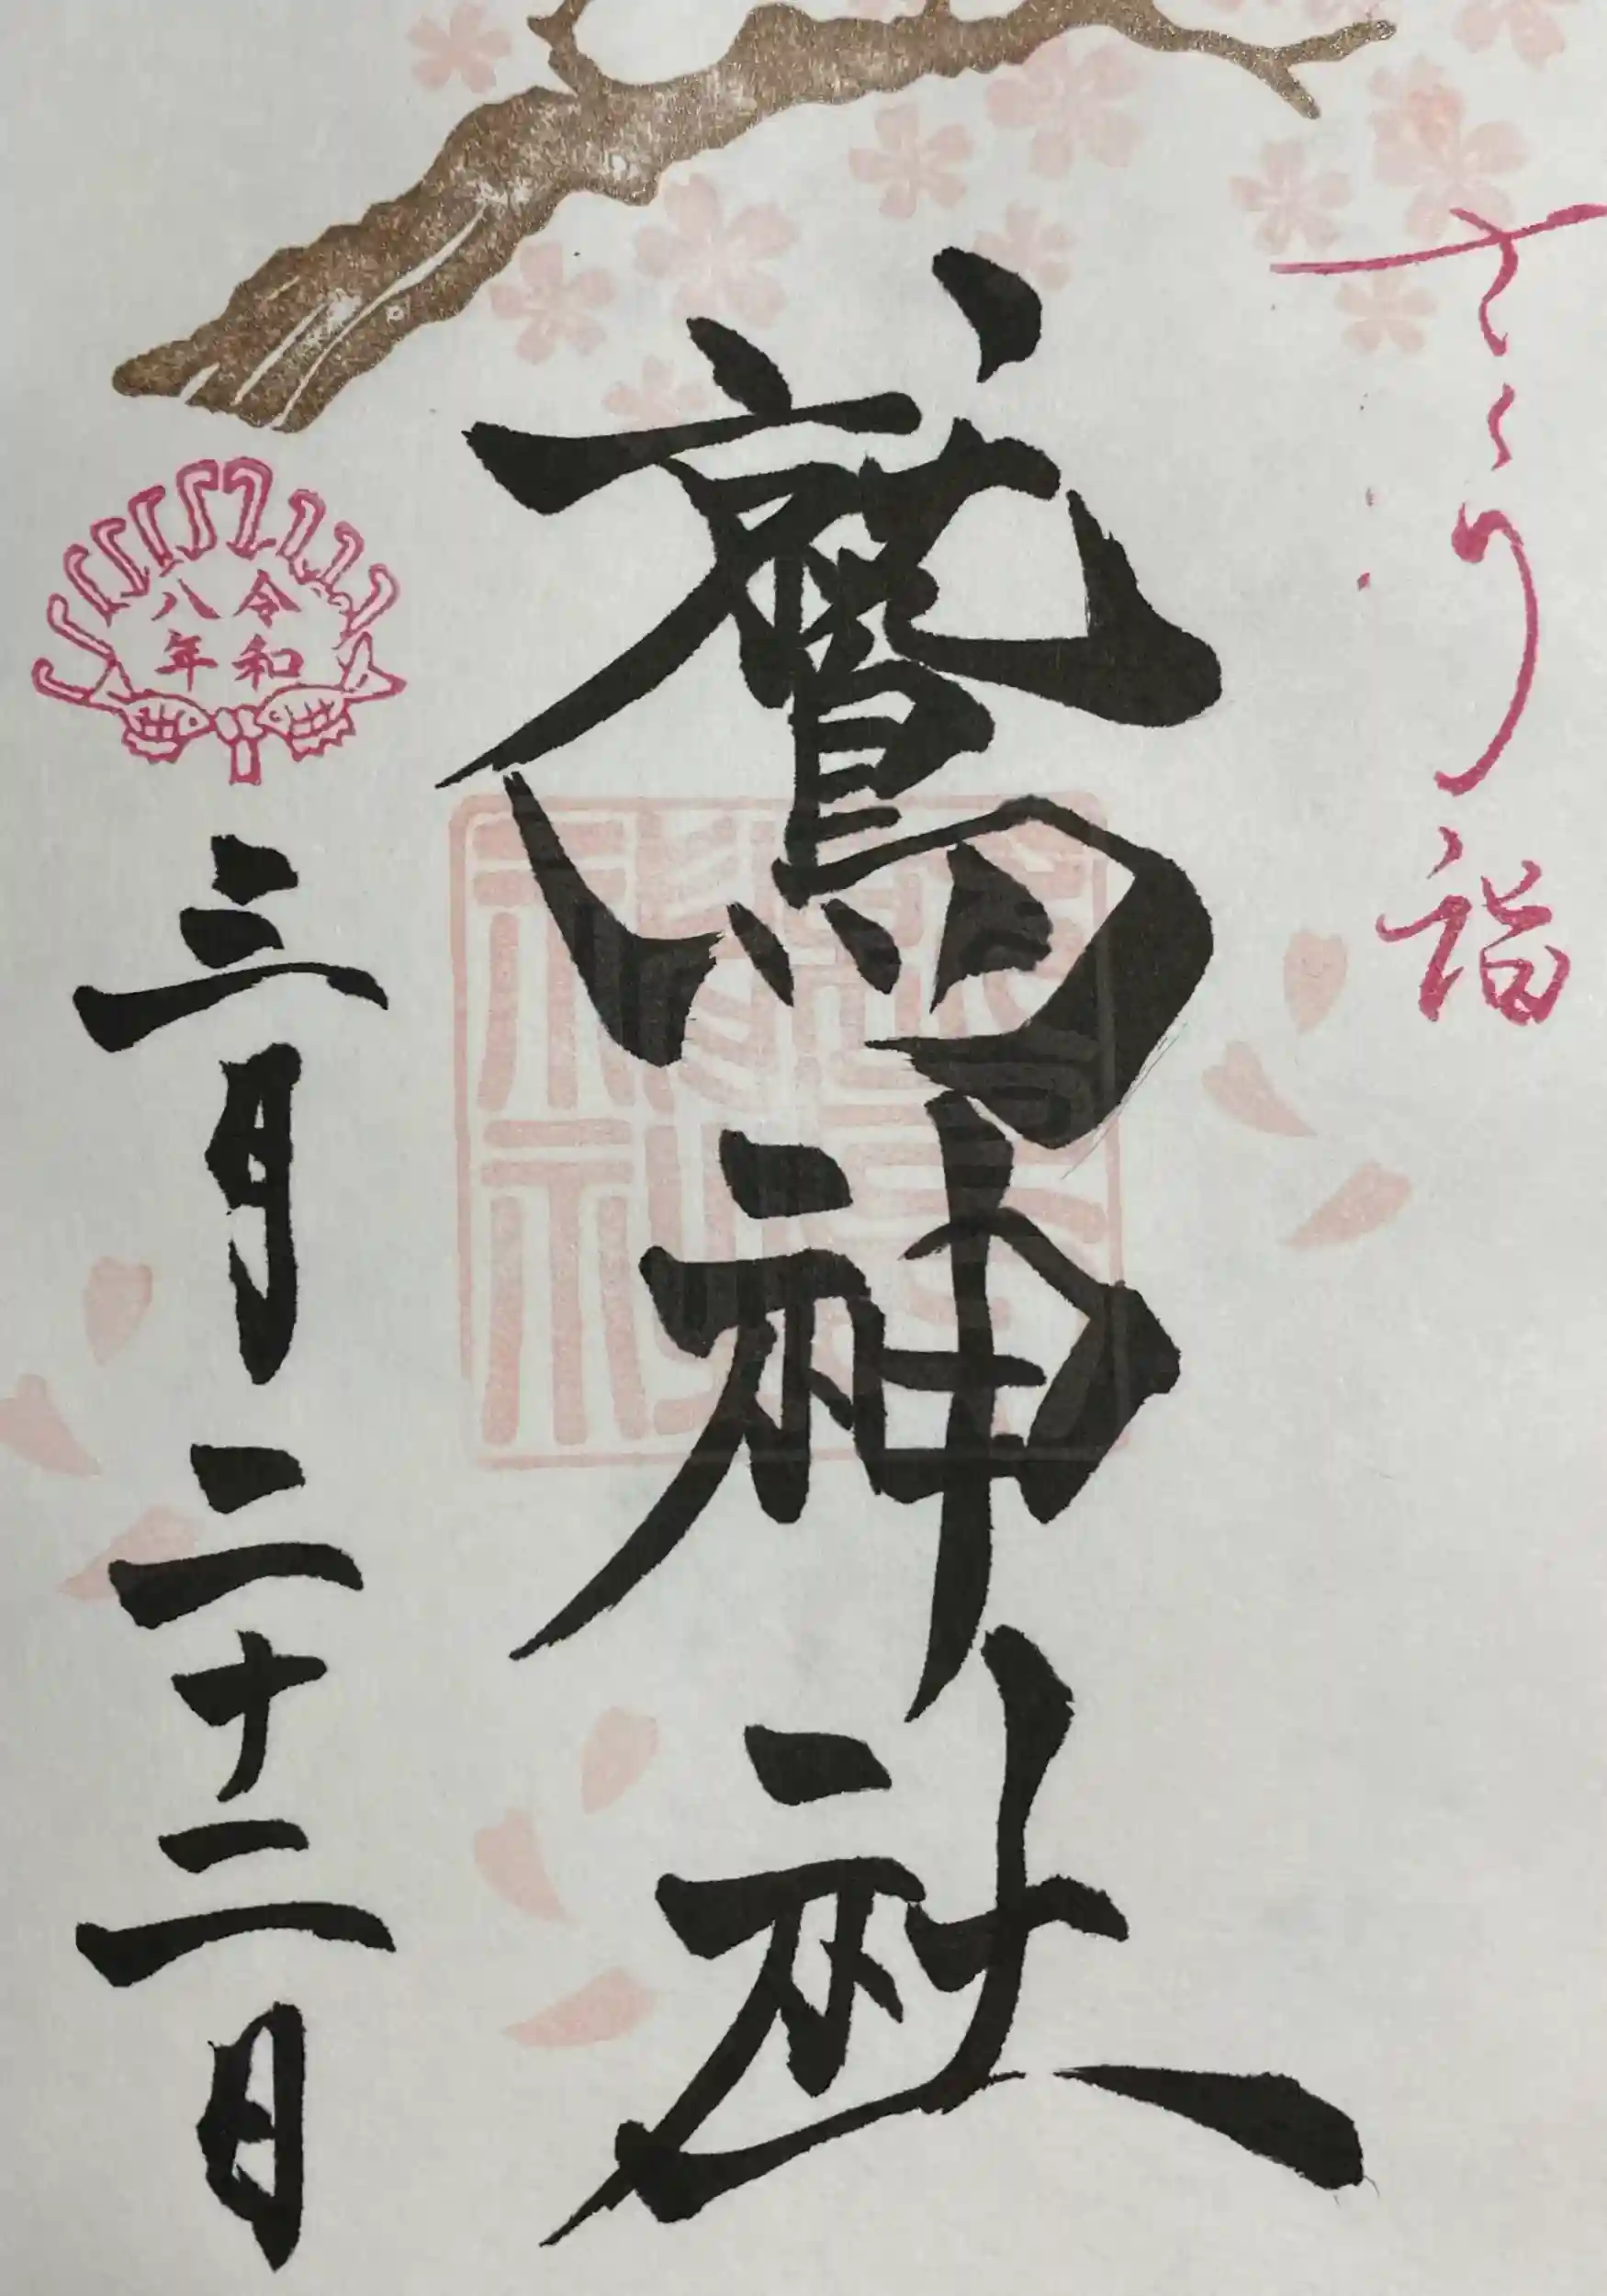 さくり詣
鷲神社
令和
八年
三月二十二日